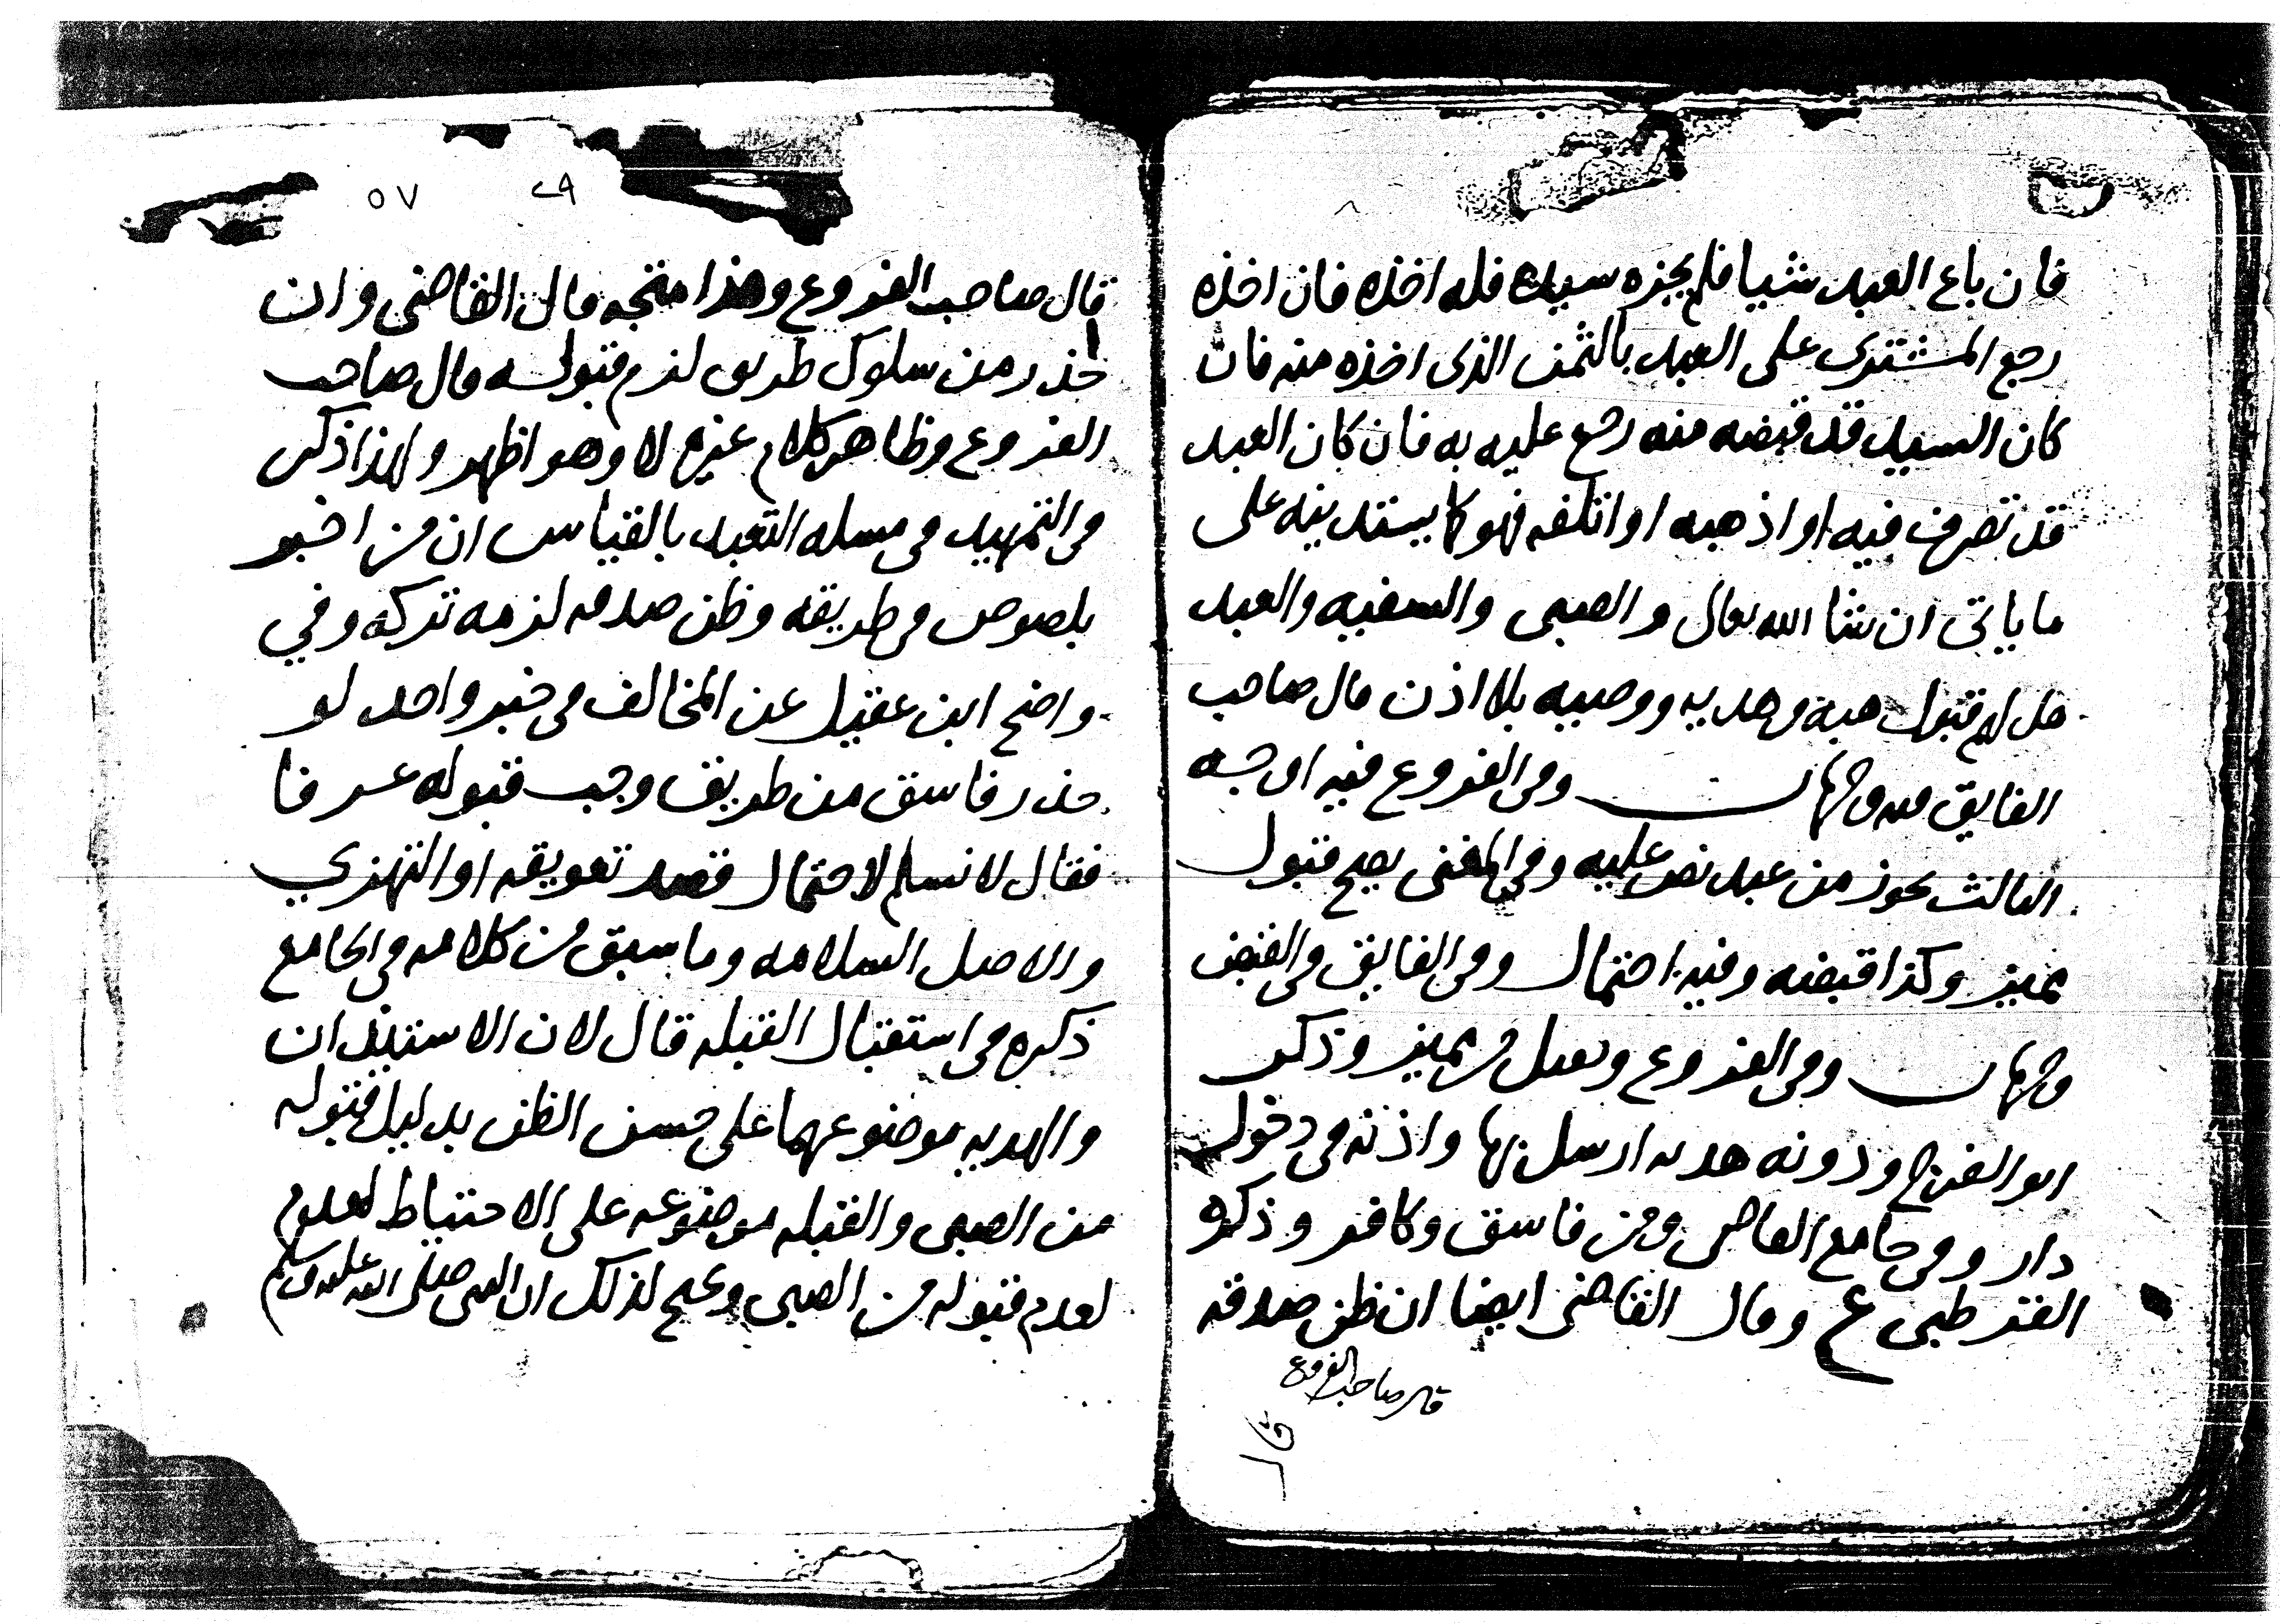 فان باع العبد شيا فلم يجزه سيده فله اخذه فان اخذه
رجع المشترى على العبد بالثمن الذى اخذه منه فان
كان السيد قد قبضه منه رجع عليه به فان كان العبد
قد تصرف فيه او اذهبه او اتلفه فهو كما يستدينه على
ما ياتى ان شا الله تعالى والصبى والسفيه والعبد
هل لهم قبول هبه وهديه ووصيه بلا اذن قال صاحب
الفايق فيه وجهان وفى الفروع فيه اوجه
الثالث يجوز من عبد نص عليه وفى المغنى يصح قبول
مميز وكذا قبضه وفيه احتمال وفى الفايق وفى القبض
وجهان وفى الفروع ويقبل من مميز وذكر
ابو الفرج ودونه هديه ارسل بها واذنه فى دخول
دار وفى جامع القاضى ومن فاسق وكافر وذكره
القرطبى ع وقال القاضى ايضا ان ظن صدقه
قال صاحب الفروع
قال
٥٧ ٤٩
قال صاحب الفروع وهذا متجه قال القاضى وان
حذر من سلوك طريق لزم قبوله قال صاحب
الفروع وظاهر كلام غيره لا وهو اظهر ولهذا ذكر
فى التمهيد فى مسله التعبد بالقياس ان من اخبر
بلصوص فى طريقه وظن صدقه لزمه تركه وفي
واضح ابن عقيل عن المخالف فى خبر واحد لو
حذر فاسق من طريق وجب قبوله عرفا
فقال لا نسلم لاحتمال قصد تعويقه او التهزي
والاصل السلامه وما سبق من كلامه فى الجامع
ذكره فى استقبال القبله قال لان الاستيذان
والهديه موضوعهما على حسن الظن بدليل قبوله
من الصبى والقبله موضوعه على الاحتياط لعدم
لعدم قبوله من الصبى وبحج لذلك ان النبى صلى الله عليه وسلم